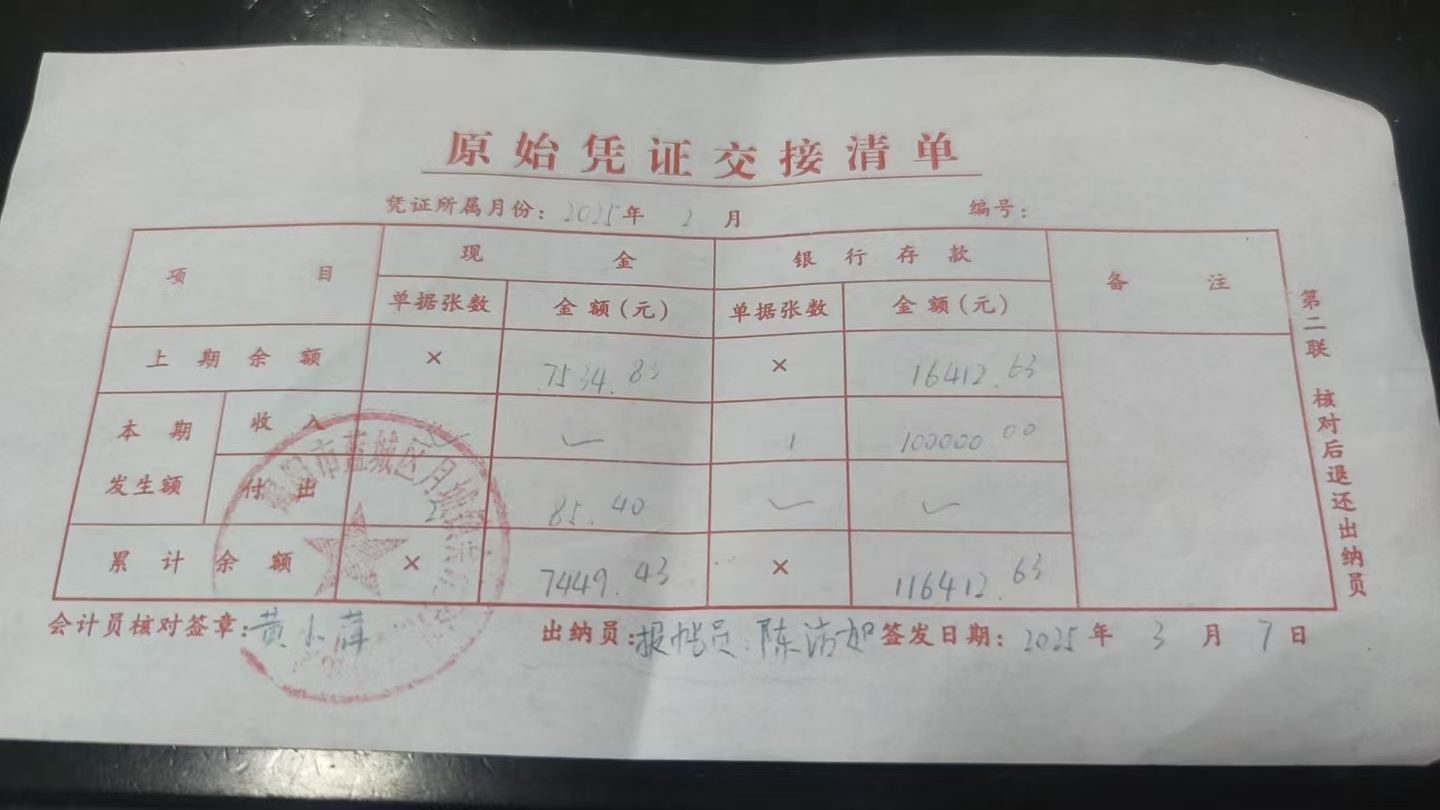 原始凭证交接清单
凭证所属月份：2025年 2 月 编号：
项 目 现 金 银 行 存 款 备 注
单据张数 金 额（元） 单据张数 金 额（元）
上 期 余 额 × 7534.83 × 16412.63
本 期 发生额 收 入 1 100000.00
付 出 2 85.40
累 计 余 额 × 7449.43 × 116412.63
会计员核对签章：黄小萍 出纳员：报帐员.陈洁如 签发日期：2025 年 3 月 7 日
第二联 核对后退还出纳员
市蓝城区月城